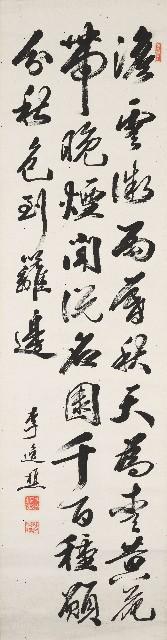 澹雲微雨秋天為愛黃花
帶晚煙聞說名園千百種願
分秋色到籬邊
李逸樵